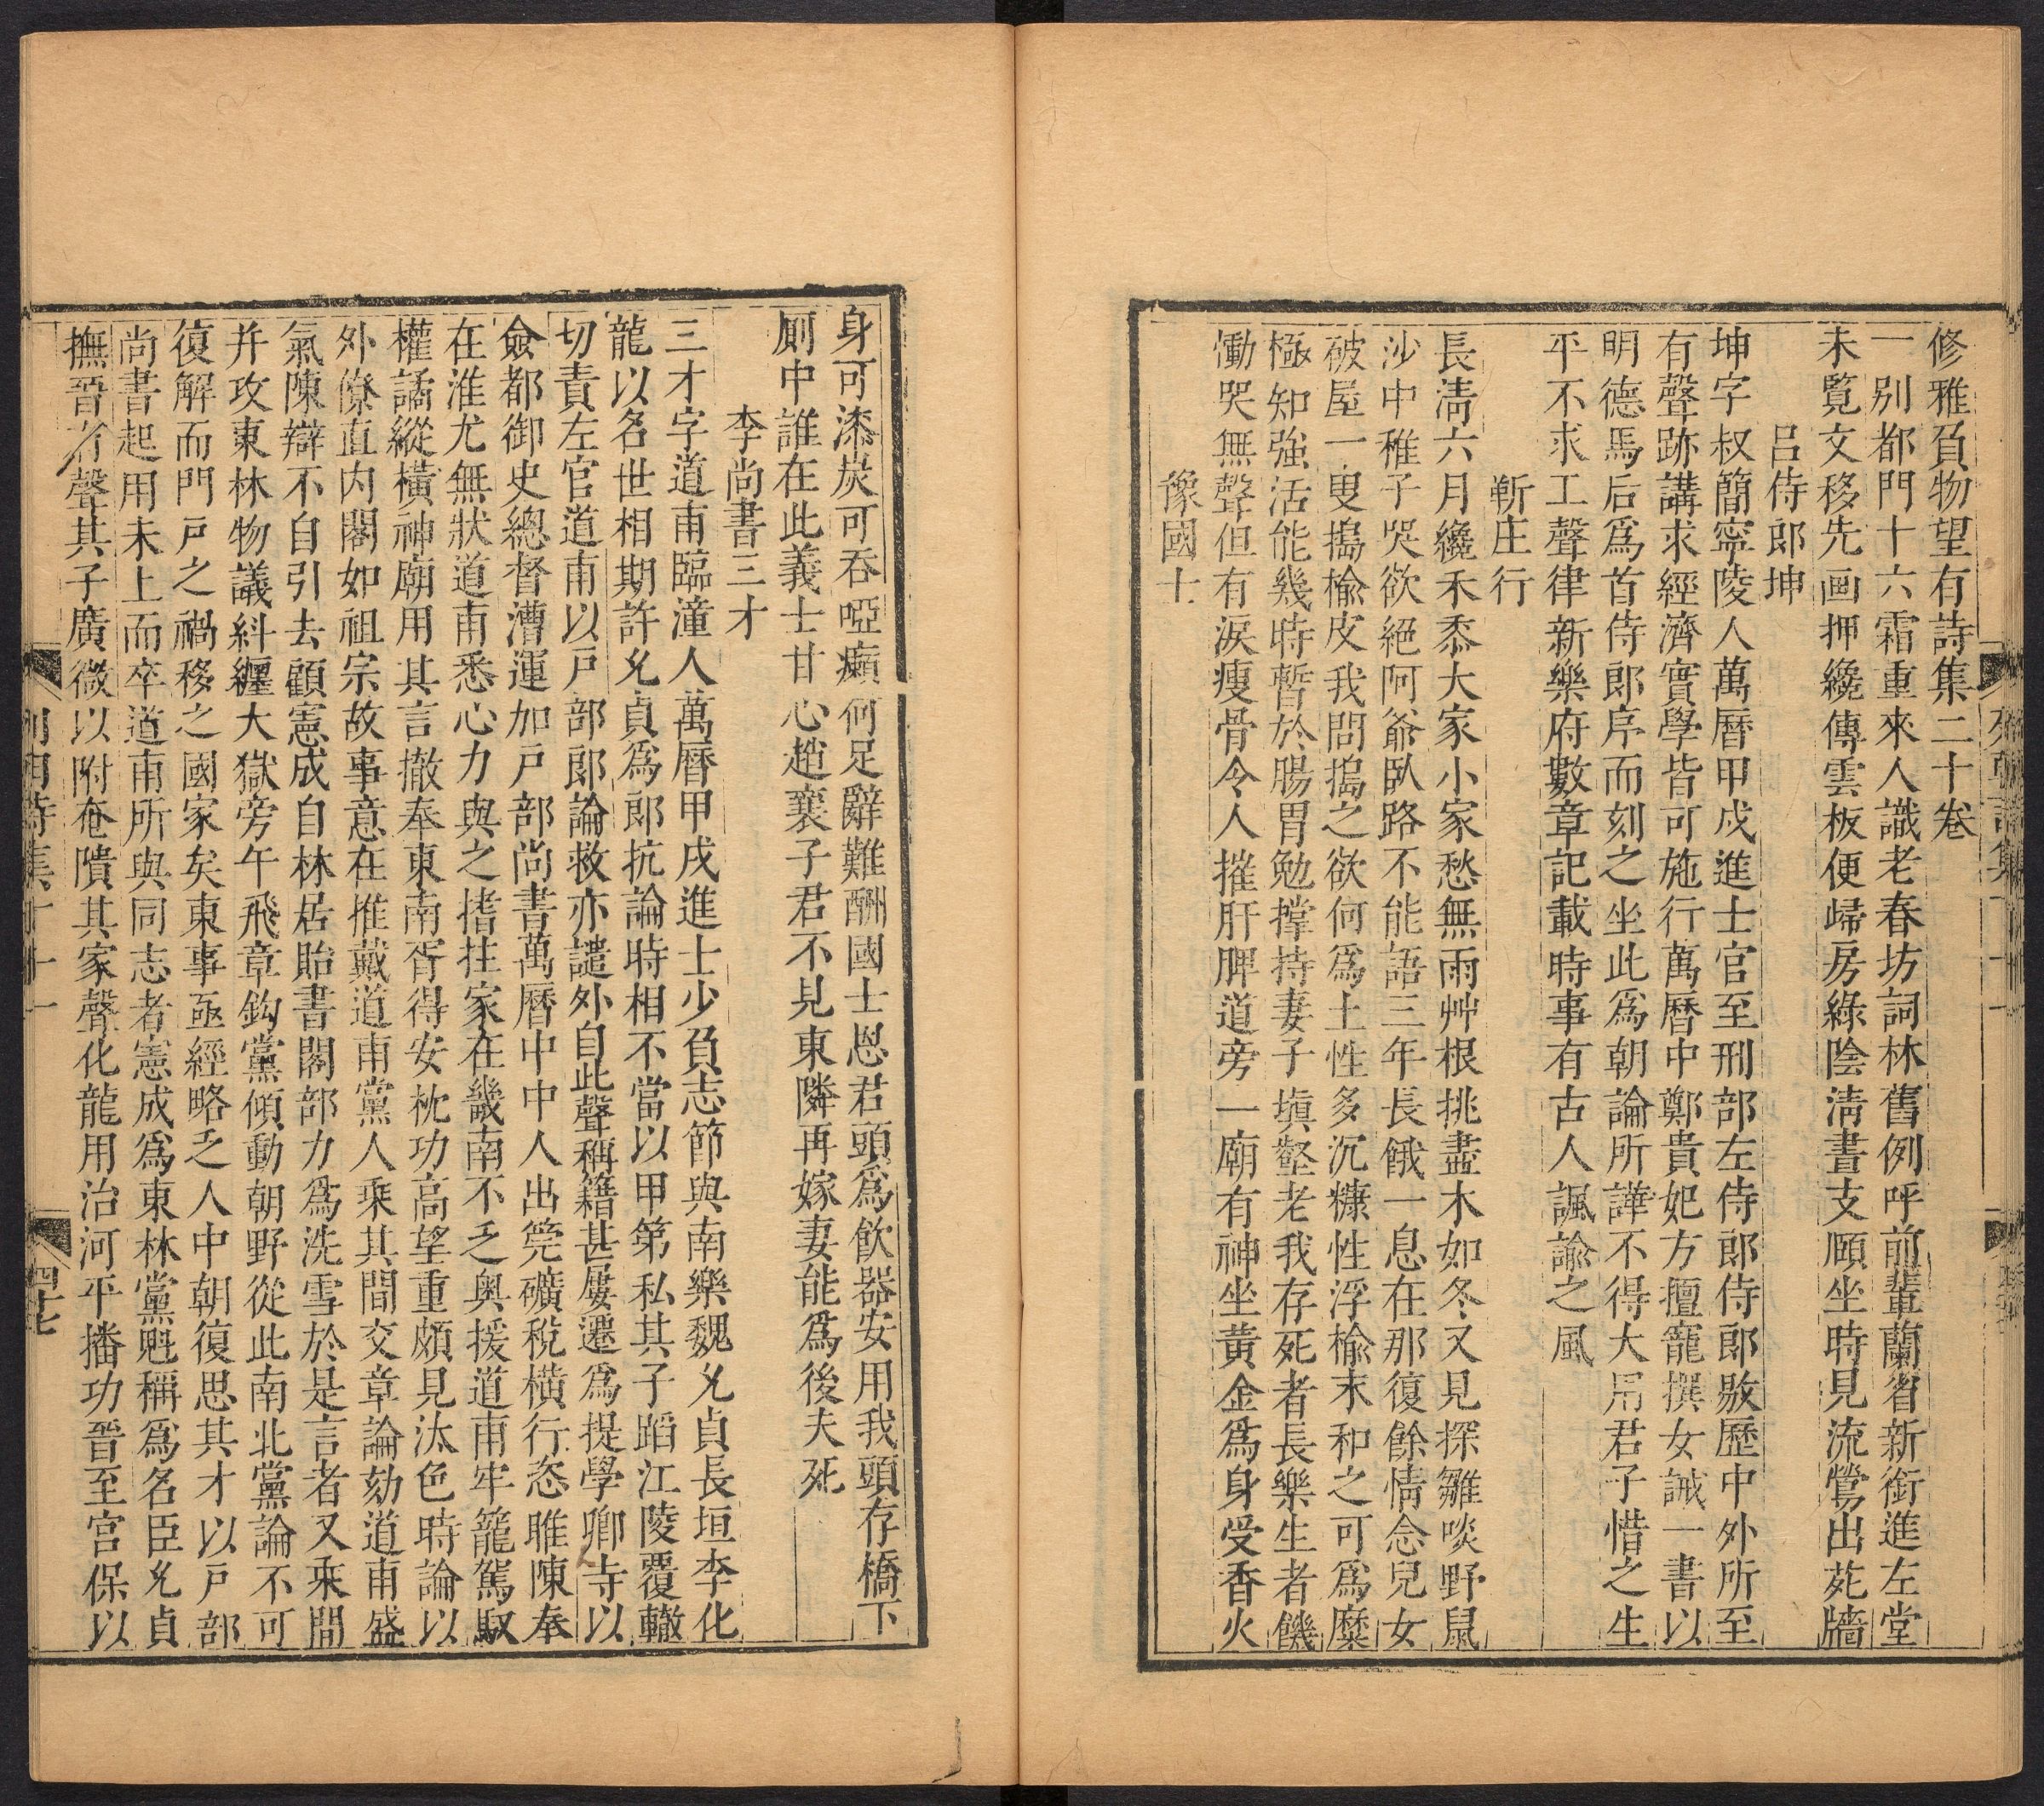 修雅負物望有詩集二十卷
一別都門十六霜重來人識老春坊詞林舊例呼前輩蘭省新銜進左堂
未覧文移先画押纔傳雲板便歸房綠陰淸晝支頤坐時見流鶯出苑牆
呂侍郎坤
坤字叔簡寧陵人萬曆甲戌進士官至刑部左侍郎侍郎敭歷中外所至
有聲跡講求經濟實學皆可施行萬曆中鄭貴妃方擅寵撰女誡一書以
明德馬后爲首侍郎序而刻之坐此爲朝論所譁不得大用君子惜之生
平不求工聲律新樂府數章記載時事有古人諷諭之風
靳庄行
長淸六月纔禾黍大家小家愁無雨艸根挑盡木如冬又見探雛啖野鼠
沙中稚子哭欲絕阿爺臥路不能語三年長餓一息在那復餘情念兒女
破屋一叟搗榆皮我問搗之欲何爲土性多沉糠性浮榆末和之可爲糜
極知強活能幾時暫於腸胃勉撑持妻子塡壑老我存死者長樂生者饑
慟哭無聲但有淚瘦骨令人摧肝脾道旁一廟有神坐黄金爲身受香火
豫國士
身可漆炭可吞啞癩何足辭難酬國士恩君頭爲飮器安用我頭存橋下
厠中誰在此義士甘心趙襄子君不見東隣再嫁妻能爲後夫死
李尚書三才
三才字道甫臨潼人萬曆甲戌進士少負志節與南樂魏允貞長垣李化
龍以名世相期許允貞爲郎抗論時相不當以甲第私其子蹈江陵覆轍
切責左官道甫以戸部郎論救亦譴外自此聲稱籍甚屢遷爲提學卿寺以
僉都御史總督漕運加戸部尚書萬曆中中人出筦礦稅橫行恣睢陳奉
在淮尤無狀道甫悉心力與之搘拄家在畿南不乏奧援道甫牢籠駕馭
權譎縱橫神廟用其言撤奉東南胥得安枕功高望重頗見汰色時論以
外僚直内閣如祖宗故事意在推戴道甫黨人乘其間交章論劾道甫盛
氣陳辯不自引去顧憲成自林居貽書閣部力爲洗雪於是言者又乘間
幷攻東林物議紏纒大獄旁午飛章鈎黨傾動朝野從此南北黨論不可
復解而門戸之禍移之國家矣東事亟經略乏人中朝復思其才以戸部
尚書起用未上而卒道甫所與同志者憲成爲東林黨魁稱爲名臣允貞
撫晋有聲其子廣微以附奄隤其家聲化龍用治河平播功晉至宮保以
列朝詩集丁十一
四十七